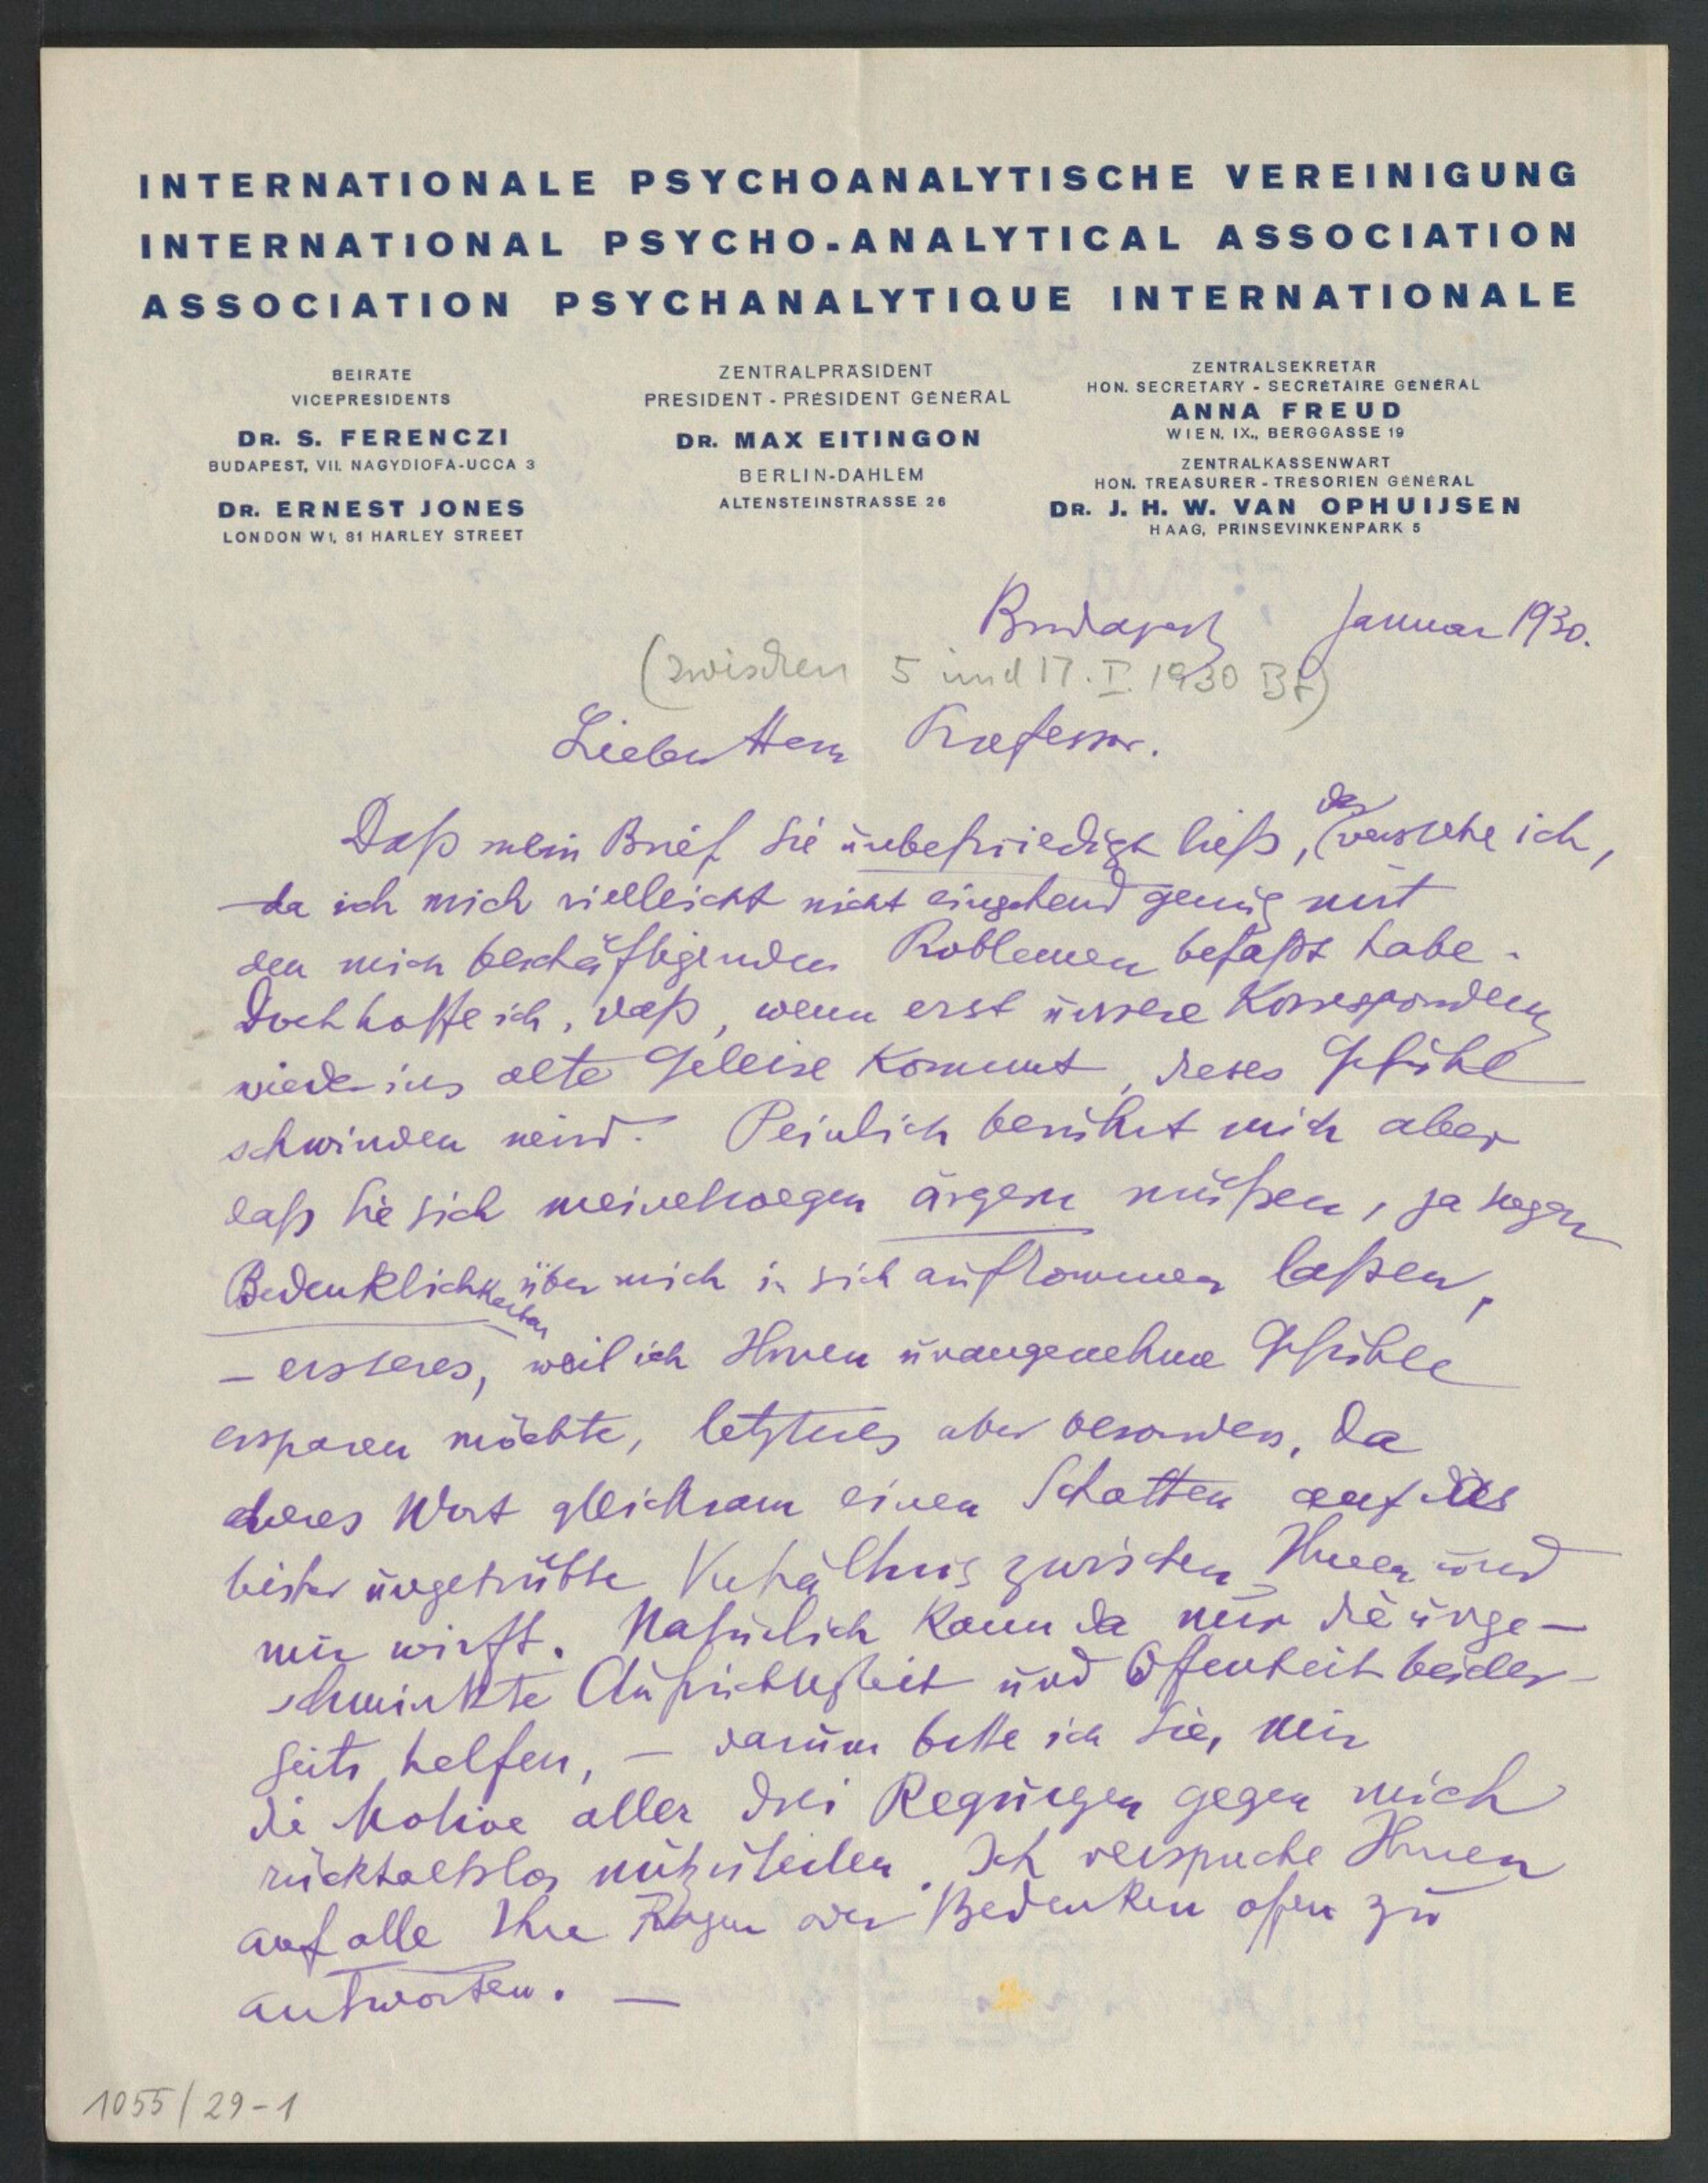 INTERNATIONALE PSYCHOANALYTISCHE VEREINIGUNG
INTERNATIONAL PSYCHO-ANALYTICAL ASSOCIATION
ASSOCIATION PSYCHANALYTIQUE INTERNATIONALE
BEIRÄTE
VICEPRESIDENTS
DR. S. FERENCZI
BUDAPEST, VII. NAGYDIOFA-UCCA 3
DR. ERNEST JONES
LONDON W1, 81 HARLEY STREET
ZENTRALPRÄSIDENT
PRESIDENT - PRÉSIDENT GÉNÉRAL
DR. MAX EITINGON
BERLIN-DAHLEM
ALTENSTEINSTRASSE 26
ZENTRALSEKRETÄR
HON. SECRETARY - SECRÉTAIRE GÉNÉRAL
ANNA FREUD
WIEN, IX., BERGGASSE 19
ZENTRALKASSENWART
HON. TREASURER - TRÉSORIEN GÉNÉRAL
DR. J. H. W. VAN OPHUIJSEN
HAAG, PRINSEVINKENPARK 5
Budapest Januar 1930.
(zwischen 5 und 17. I. 1930
Lieber Herr Professor.
Daß mein Brief Sie unbefriedigt ließ, das verstehe ich,
da ich mich vielleicht nicht eingehend genug mit
den mich beschäftigenden Problemen befaßt habe.
Doch hoffe ich, daß, wenn erst unsere Korrespondenz
wieder ins alte Geleise kommt, dieses Gefühl
schwinden wird. Peinlich berührt mich aber
daß Sie sich meinetwegen ärgern müßen, ja sogar
Bedenklichkeiten über mich in sich aufkommen laßen,
– ersteres, weil ich Ihnen unangenehme Gefühle
ersparen möchte, letzteres aber besonders, da
dieses Wort gleichsam einen Schatten auf das
bisher ungetrübte Verhältnis zwischen Ihnen und
mir wirft. Natürlich kann da nur die unge-
schminkte Aufrichtigkeit und Offenheit beider-
seits helfen, – darum bitte ich Sie, mir
die Motive aller drei Regungen gegen mich
rückhaltslos mitzuteilen. Ich verspreche Ihnen
auf alle Ihre Fragen oder Bedenken offen zu
antworten. —
1055/29-1